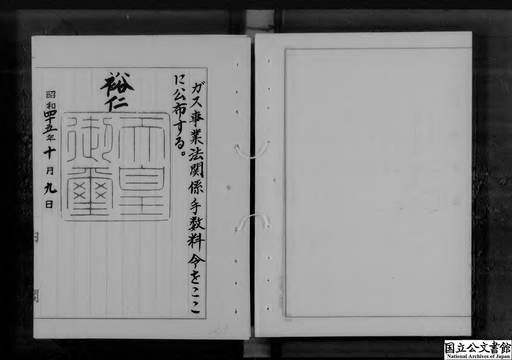 ガス事業法関係手数料令をここ
に公布する。
裕仁
天皇
御璽
昭和四十五年十月九日
国立公文書館
National Archives of Japan